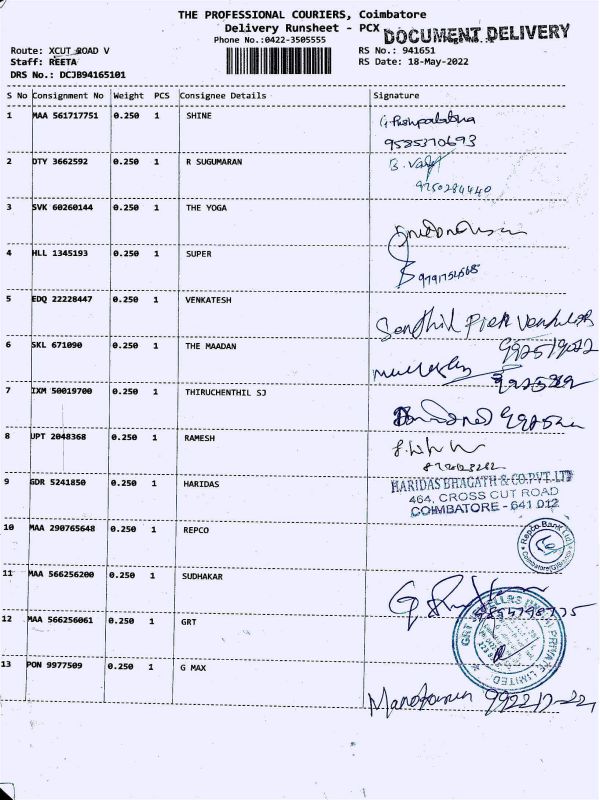 THE PROFESSIONAL COURIERS, Coimbatore
Delivery Runsheet - PCX
DOCUMENT DELIVERY
Phone No.:0422-3505555
Route: XCUT ROAD V
RS No.: 941651
Staff: REETA
RS Date: 18-May-2022
DRS No.: DCJB94165101
S No Consignment No Weight PCS Consignee Details Signature
1 MAA 561717751 0.250 1 SHINE
9585370693
2 DTY 3662592 0.250 1 R SUGUMARAN
9750284440
3 SVK 60260144 0.250 1 THE YOGA
4 HLL 1345193 0.250 1 SUPER
5 EDQ 22228447 0.250 1 VENKATESH
Senthil
6 SKL 671090 0.250 1 THE MAADAN
7 IXM 50019700 0.250 1 THIRUCHENTHIL SJ
8 UPT 2048368 0.250 1 RAMESH
9 GDR 5241850 0.250 1 HARIDAS
HARIDAS BHAGATH & CO.PVT.LTD
464, CROSS CUT ROAD
COIMBATORE - 641 012
10 MAA 290765648 0.250 1 REPCO
Repco Bank Ltd
11 MAA 566256200 0.250 1 SUDHAKAR
12 MAA 566256061 0.250 1 GRT
GRT JEWELLERS (INDIA) PRIVATE LIMITED
13 PON 9977509 0.250 1 G MAX